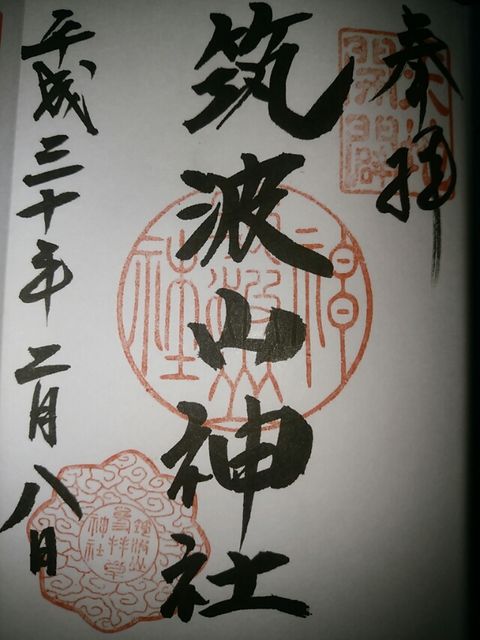 奉拝
筑波山神社
平成三十年二月八日